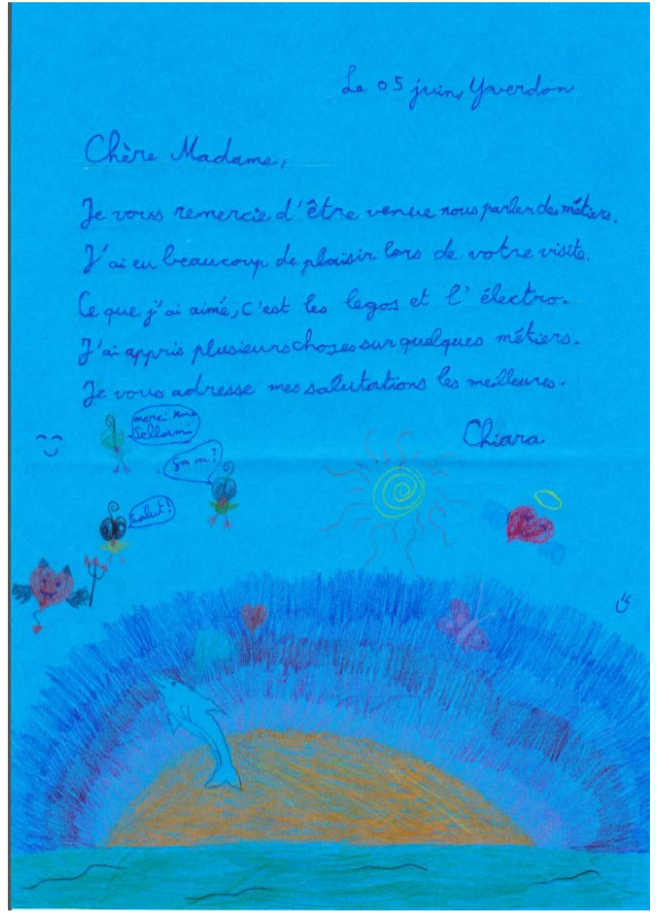 Le 05 juin, Yverdon
Chère Madame,
Je vous remercie d'être venue nous parler des métiers.
J'ai eu beaucoup de plaisir lors de votre visite.
Ce que j'ai aimé, c'est les legos et l'électro.
J'ai appris plusieurs choses sur quelques métiers.
Je vous adresse mes salutations les meilleures.
Chiara
merci
Sellami
salut!